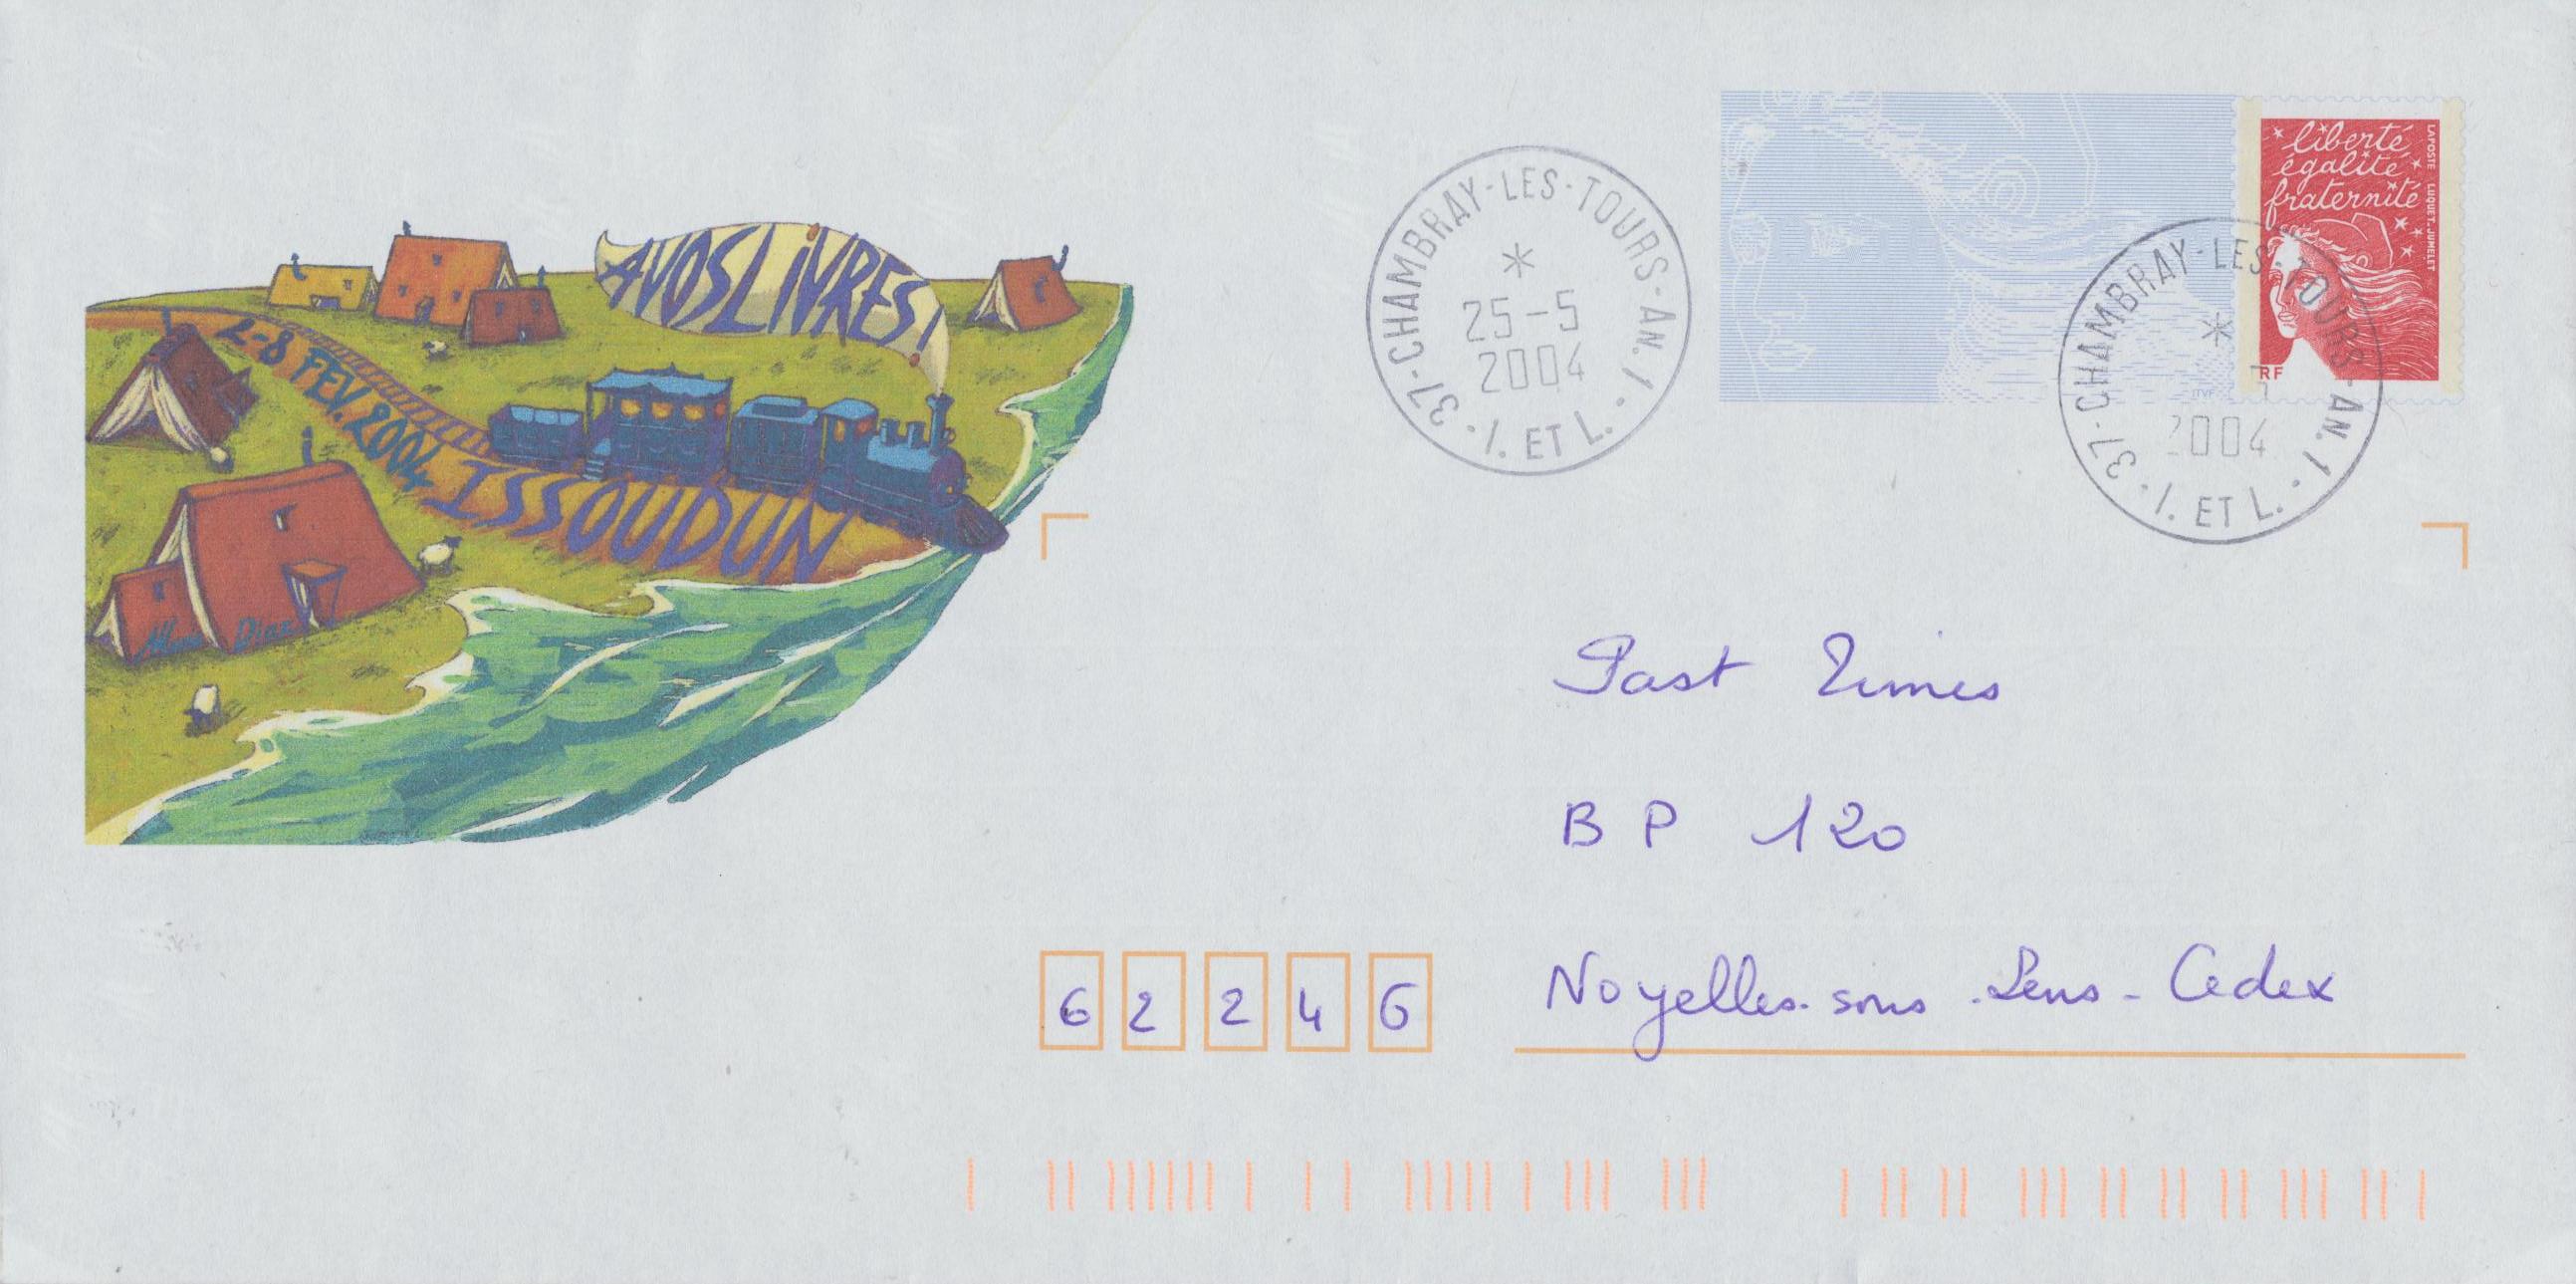 AVOSLIVRES!
2-8 FEV. 2004
ISSOUDUN
Diaz
37-CHAMBRAY-LES-TOURS-AN.1
*
25-5
2004
I. ET L.
liberté
égalité
fraternité
LA POSTE LUQUET, JUMELET
RF
ITVF
37-CHAMBRAY-LES-TOURS-AN.1
*
2004
I. ET L.
Past Times
B P 120
62246 Noyelles-sous-Lens-Cedex